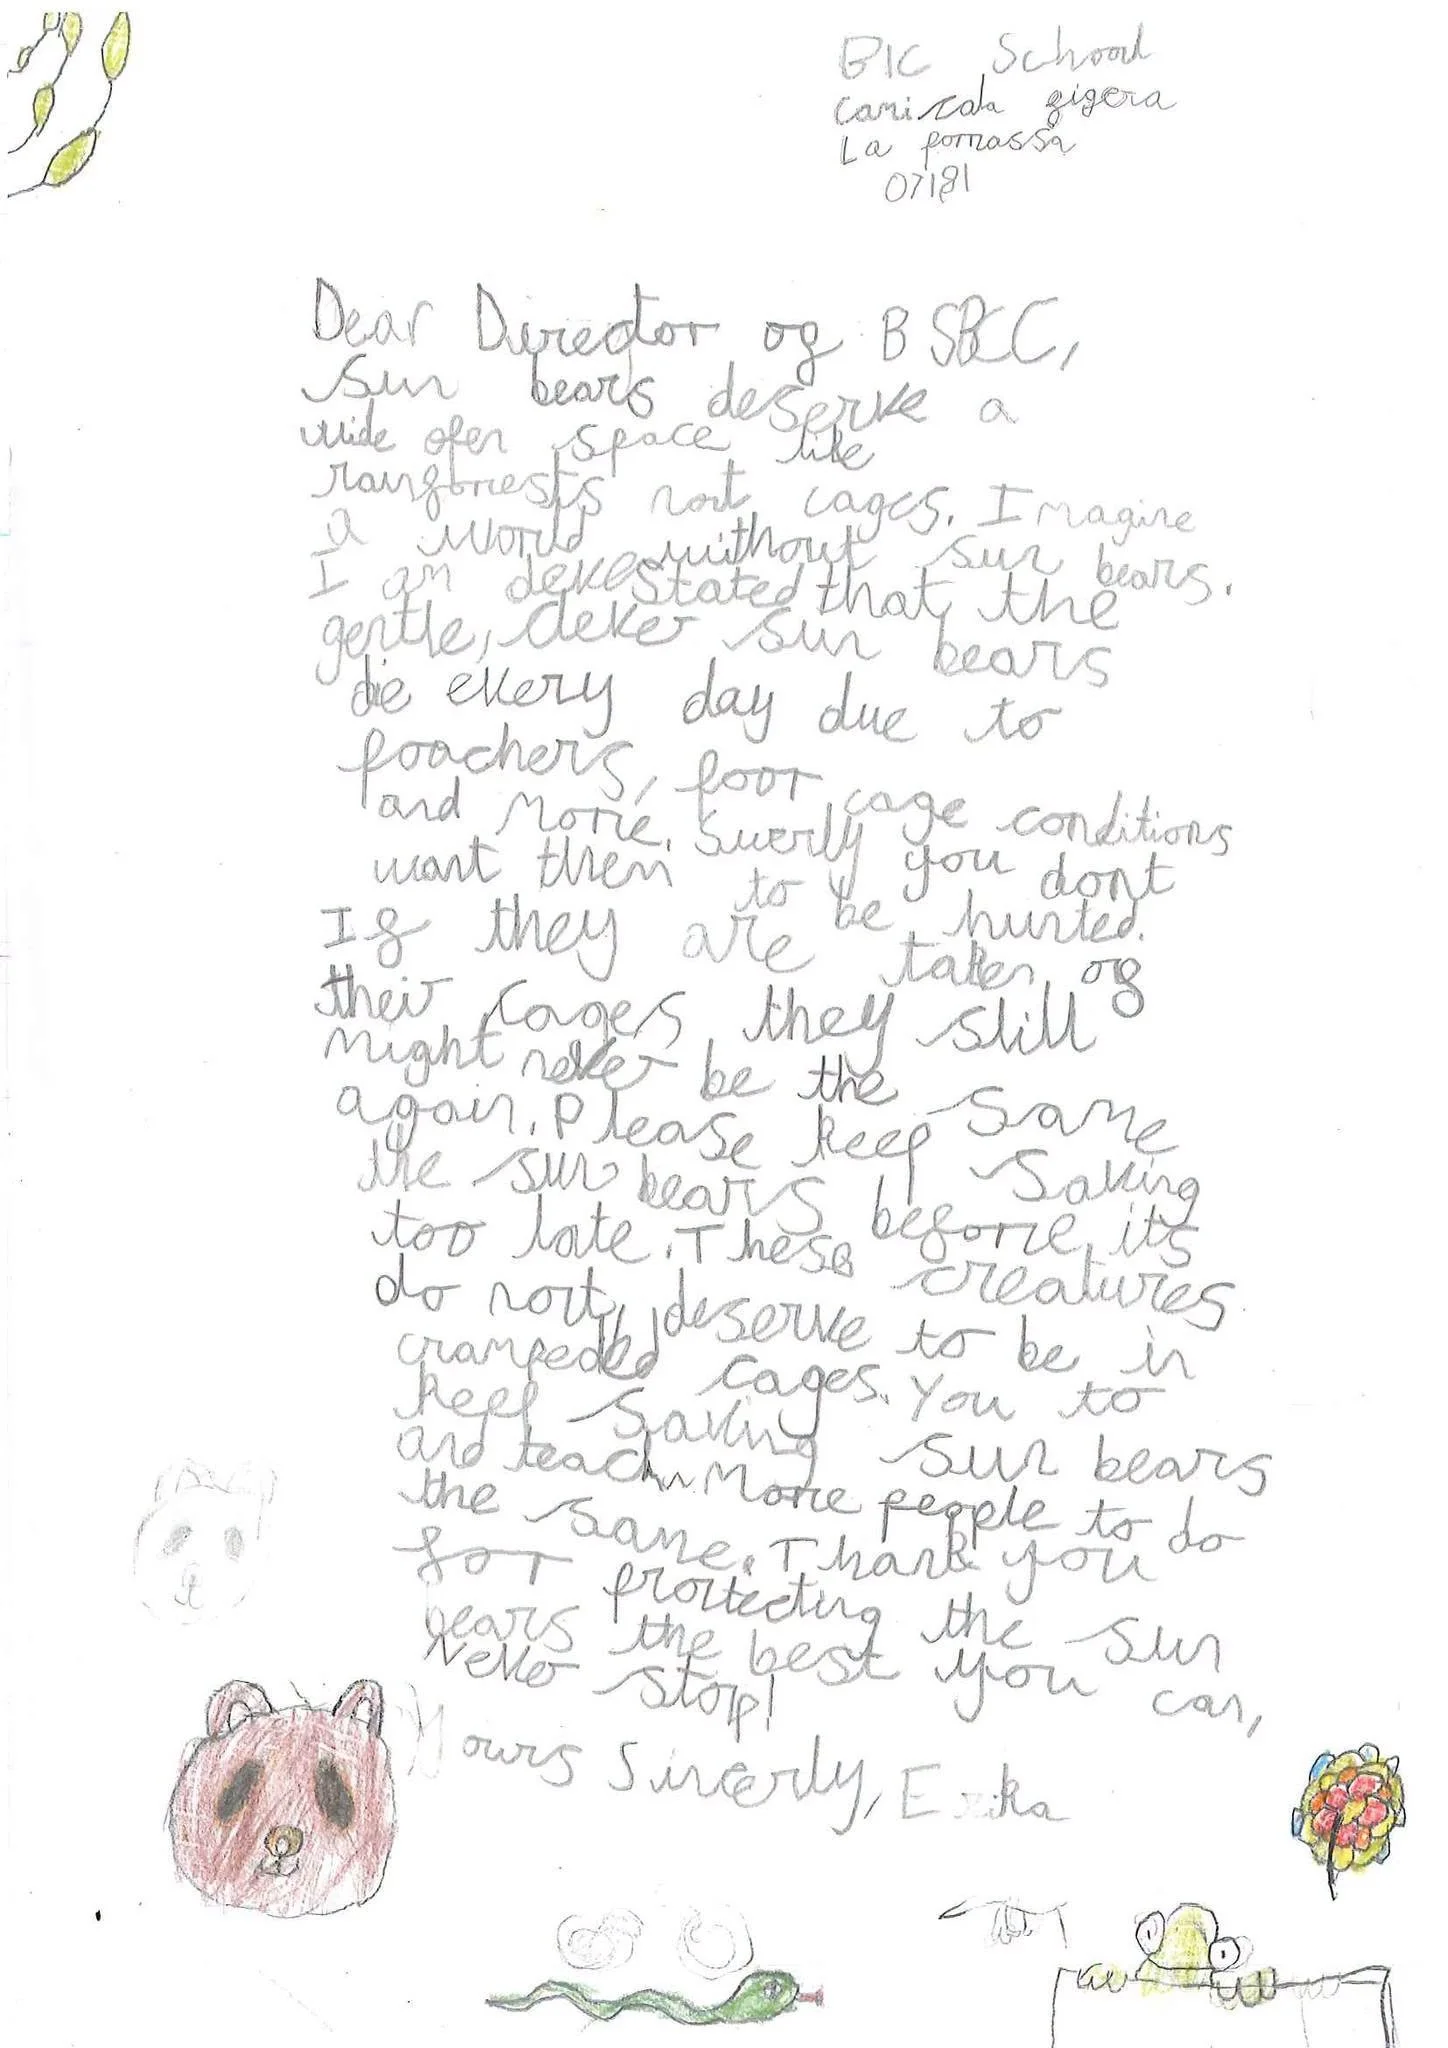 BIC School
cami cala figera
La porrassa
07181
Dear Director of BSBCC,
Sun bears deserve a
wide open space like
rainforrests not cages. Imagine
a world without sun bears.
I am devestated that the
gentle, clever sun bears
die every day due to
poachers, poor cage conditions
and more. Suerly you dont
want them to be hunted.
If they are taken of
their cages they still
might never be the same
again. Please keep saving
the sun bears before its
too late. These creatures
do not deserve to be in
crampeded cages. You to
keep saving sun bears
and teach more people to do
the same. Thank you
for protecting the sun
bears the best you can,
Never stop!
Yours Sincerly, Erika